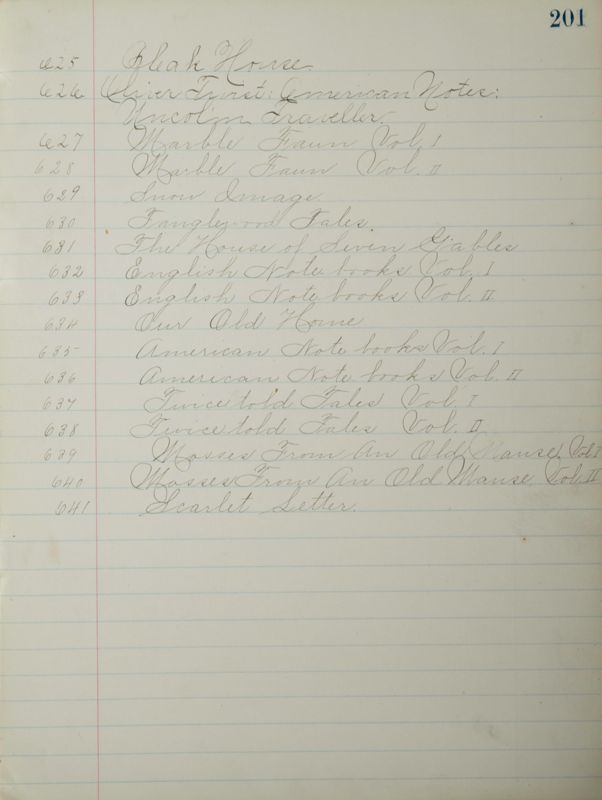 201
625 Bleak House.
626 Oliver Twist: American Notes:
Uncolm Traveller.
627 Marble Faun Vol. I
628 Marble Faun Vol. II
629 Snow Image
630 Tanglewood Tales.
631 The House of Seven Gables
632 English Note books Vol. I
633 English Note books Vol. II
634 Our Old Home
635 American Note books Vol. I
636 American Note books Vol. II
637 Twice told Tales Vol. I
638 Twice told Tales Vol. II
639 Mosses From An Old Manse, Vol. I
640 Mosses From An Old Manse Vol. II
641 Scarlet Letter.